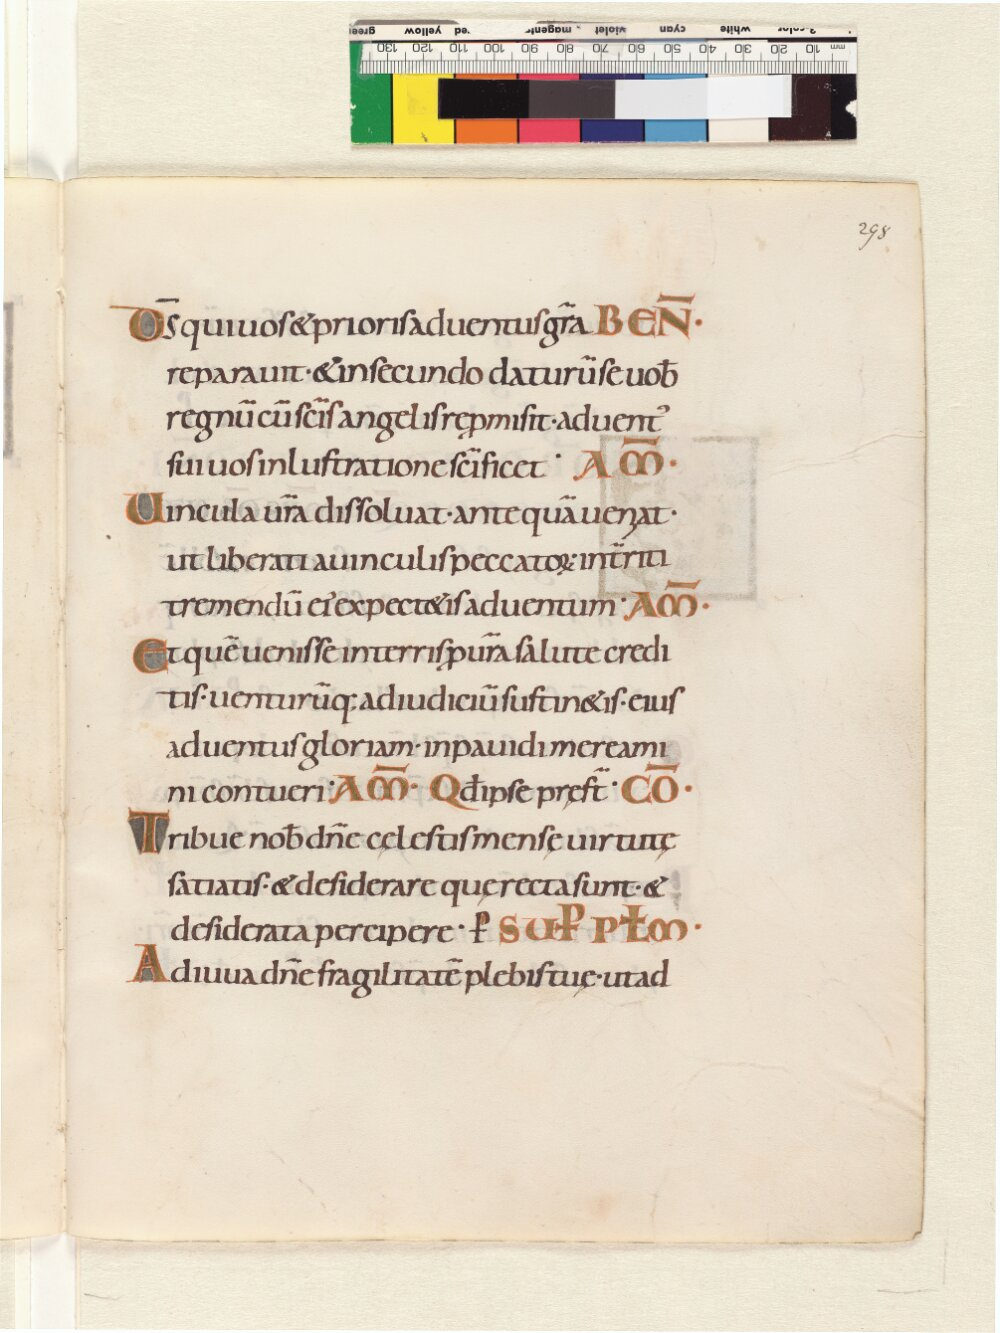 298
D̅s qui uos & prioris aduentus gr̅a BEN̅·
reparauit· & in secundo daturu̅ se uob̅
regnu̅ cu̅ sc̅is angelis repromisit· aduent᾽
sui uos inlustratione sc̅ificet· AM̅·
Uincula ur̅a dissoluat· ante qua̅ ueniat·
ut liberati a uinculis peccatoꝝ int̅riti
tremendu̅ ei᾽ expect&is aduentum· AM̅·
Et que̅ uenisse in terris ꝓ ur̅a salute credi
tis· uenturu̅q; ad iudiciu̅ sustin&is· eius
aduentus gloriam· inpauidi mereami
ni contueri· AM̅· Qd̅ ipse pręst̅· CO̅·
Tribue nob̅ dn̅e cęlestis mensę uirtutę
satiatis· & desiderare quę recta sunt· &
desiderata percipere· ꝑ SUꝐ P̅LM·
Adiuua dn̅e fragilitate̅ plebis tuę· ut ad